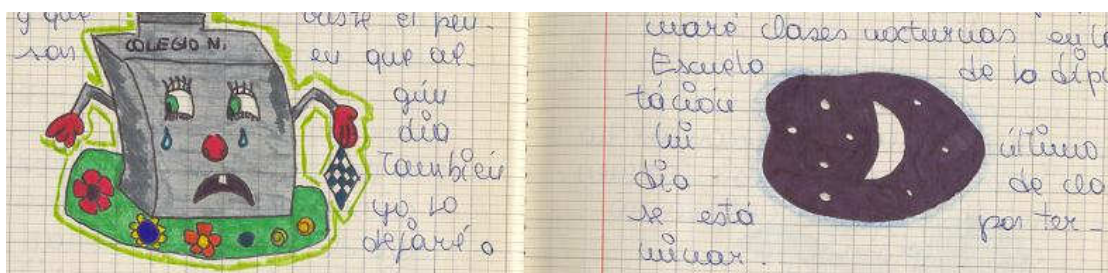 y que baste el pen-
COLEGIO N.
sar en que al-
gún
día
también
yo lo
dejaré.
clases nocturnas en
Escuela de la dipu
tación
mi último
día de cla
se está por ter-
minar.